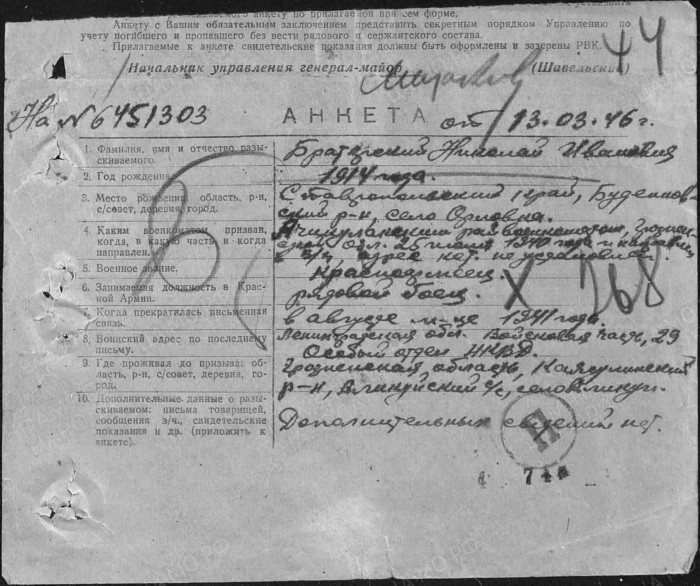 анкету по прилагаемой при сем форме.
Анкету с Вашим обязательным заключением представить секретным порядком Управлению по
учету погибшего и пропавшего без вести рядового и сержантского состава.
Прилагаемые к анкете свидетельские показания должны быть оформлены и заверены РВК.
44
Начальник управления генерал-майор (Шавельский)
На № 6451303 АНКЕТА от 13.03.46 г.
1. Фамилия, имя и отчество разыскиваемого. Николай Иванович
2. Год рождения 1914 года.
3. Место рождения: область, р-н, Ставропольский край, Буденнов-
с/совет, деревня, город. ский р-н, село Орловка.
4. Каким военкоматом призван, Ачикулакским райвоенкоматом, Грознен-
когда, в какую часть и когда ской обл. 1940 года и направлен
направлен. в в/ч, адрес нет. не установлен.
5. Военное звание. Красноармеец.
6. Занимаемая должность в Крас- рядовой боец. 268
ной Армии.
7. Когда прекратилась письменная в августе м-це 1941 года.
связь.
8. Воинский адрес по последнему Ленинградская обл. Войсковая часть, 29
письму. Особый отдел НКВД.
9. Где проживал до призыва: об- Грозненская область, Каясулинский
ласть, р-н, с/совет, деревня, го- р-н, с/с, село
род.
10. Дополнительные данные о разы- Дополнительных сведений нет.
скиваемом: письма товарищей,
сообщения в/ч., свидетельские
показания и др. (приложить к
анкете).
П
744